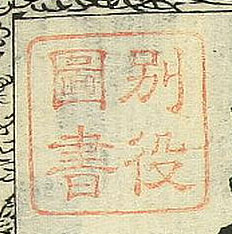 別役
圖書